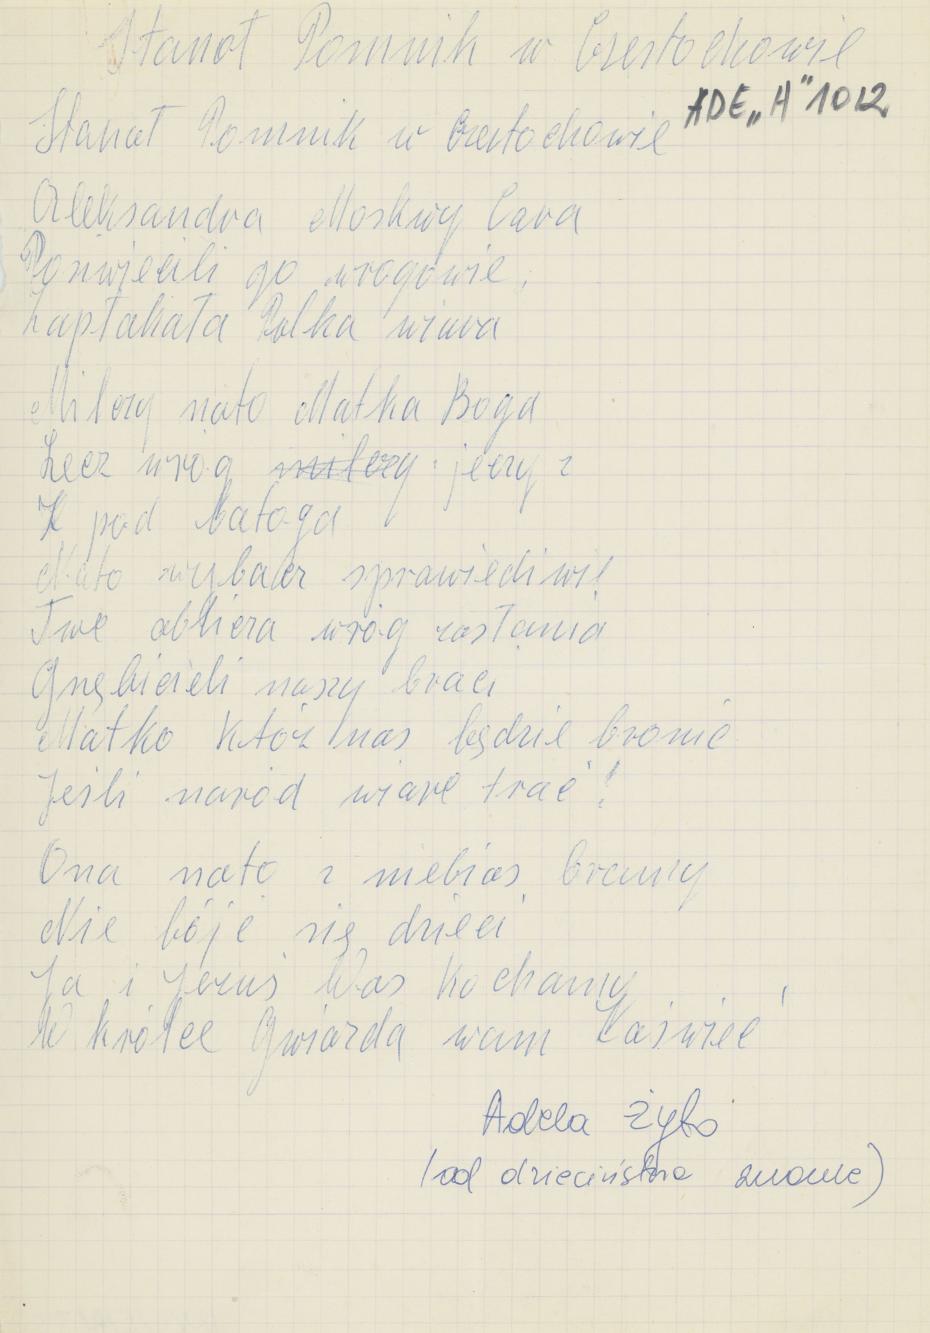 Stanoł Pomnik w Czestochowie
ADE „H” 1012
Stanoł Pomnik w Czestochowie
Aleksandra Moskwy Cara
Poświecili go wrogowie,
Zapłakała Polka wiara
Milczy nato Matka Boga
Lecz wróg milczy jeczy z
Z pod batoga
Nato wybacz sprawiedliwie
Twe obliera wróg zasłania
Gnębicieli naszy braci
Matko któż nas będzie bronić
Jeśli naród wiare trać!
Ona nato z niebios bramy
Nie bójć się dzieci
Ja i Jezus Was kochamy
W krótce Gwiazda wam Zaświeć
Adela Żyłs
(od dzieciństwa znane)